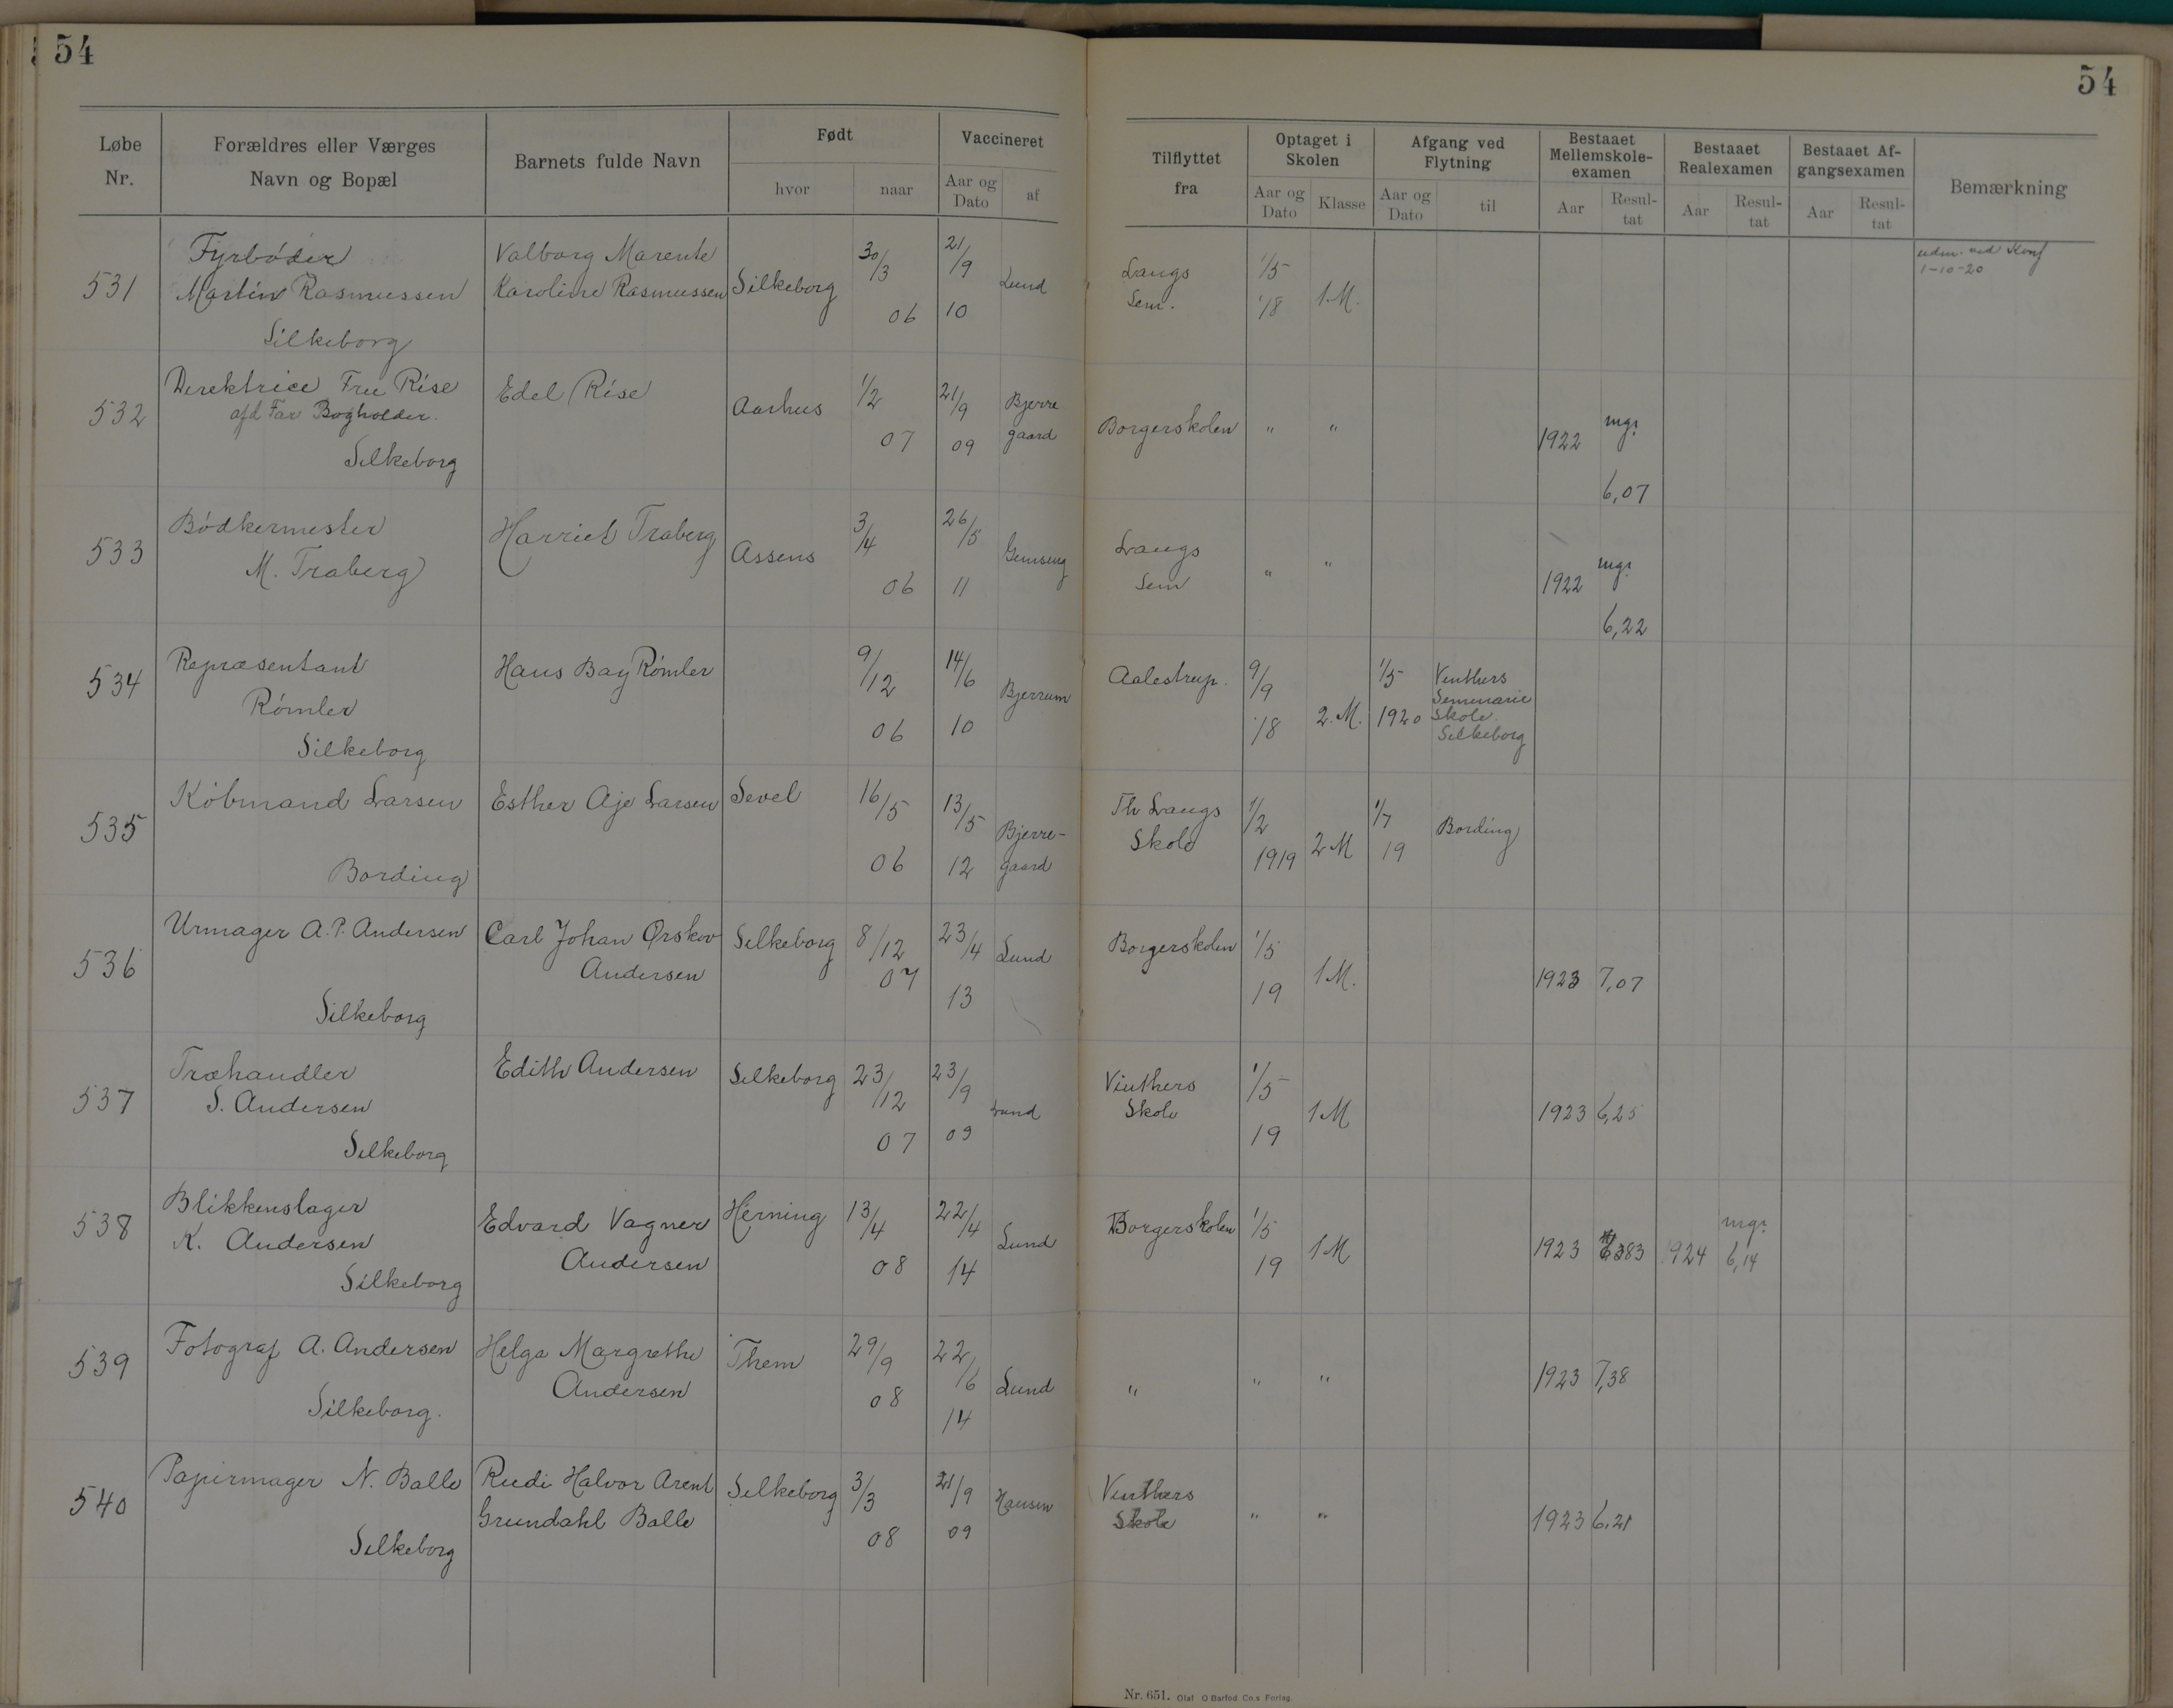 54
54
Løbe Nr.
Forældres eller Værges Navn og Bopæl
Barnets fulde Navn
Født
hvor
naar
Vaccineret
Aar og Dato
af
Tilflyttet fra
Optaget i Skolen
Aar og Dato
Klasse
Afgang ved Flytning
Aar og Dato
til
Bestaaet Mellemskole-examen
Aar
Resul-tat
Bestaaet Realexamen
Aar
Resul-tat
Bestaaet Af-gangsexamen
Aar
Resul-tat
Bemærkning
531
Fyrbøder
Martin Rasmussen
Silkeborg
Valborg Marente
Karoline Rasmussen
Silkeborg
30/3 06
21/9 10
Lund
Langs
Sem.
1/5 18
1.M.
udm. ved Konf
1-10-20
532
Direktrice Fru Rise
afd Far Bogholder.
Silkeborg
Edel Rise
Aarhus
1/2 07
21/9 09
Bjerre
gaard
Borgerskolen
"
"
1922
mg?
6,07
533
Bødkermester
M. Traberg
Harriet Traberg
Assens
3/4 06
26/5 11
Langs
Sem
"
"
1922
mg?
6,22
534
Repræsentant
Rømler
Silkeborg
Hans Bay Rømler
9/12 06
14/6 10
Bjerrum
Aalestrup.
9/9 18
2.M.
1/5 1920
Vinthers
Seminarie
Skole
Silkeborg
535
Købmand Larsen
Bording
Esther Aje Larsen
Sevel
16/5 06
13/5 12
Bjerre-
gaard
Th Langs
Skole
1/2 1919
2 M
1/7 19
Bording
536
Urmager A.P. Andersen
Silkeborg
Carl Johan Ørskov
Andersen
Silkeborg
8/12 07
23/4 13
Lund
Borgerskolen
1/5 19
1M.
1923
7,07
537
Træhandler
S. Andersen
Silkeborg
Edith Andersen
Silkeborg
23/12 07
23/9 09
Lund
Vinthers
Skole
1/5 19
1M
1923
6,25
538
Blikkenslager
K. Andersen
Silkeborg
Edvard Vagner
Andersen
Herning
13/4 08
22/4 14
Lund
Borgerskolen
1/5 19
1M
1923
1924
mg?
6,14
539
Fotograf A. Andersen
Silkeborg.
Helga Margrethe
Andersen
Them
29/9 08
22/6 14
Lund
"
"
"
1923
7,38
540
Papirmager N. Balle
Silkeborg
Rudi Halvor Arent
Grundahl Balle
Silkeborg
3/3 08
21/9 09
Hansen
Vinthers
Skole
"
"
1923
6,21
Nr. 651. Olaf O Barfod Co.s Forlag.